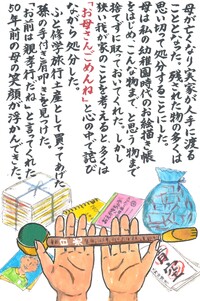 母が亡くなり実家が人手に渡る
ことになった。残された物の多くは
思い切って処分することにした。
母は私の幼稚園時代のお絵描き帳
をはじめ、こんな物まで、と思う物まで
捨てずに取っておいてくれた。しかし
狭い我が家のことを考えると、多くは
「お母さんごめんね」と心の中で詫び
ながら処分した。
ふと修学旅行土産として買ってあげた
孫の手付き肩叩きを見つけた。
「お前は親孝行だね」と言ってくれた
50年前の母の笑顔が浮かんできた。